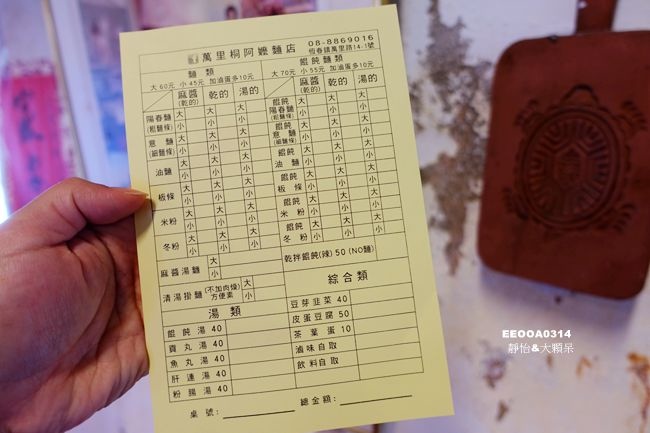 萬里桐阿嬤麵店
08-8869016
恆春鎮萬里路14-1號
麵類
大60元 小45元 加滷蛋多10元
麻醬(乾的) 乾的 湯的
陽春麵(粗麵條) 大 大 大
小 小 小
意麵(細麵條) 大 大 大
小 小 小
油麵 大 大 大
小 小 小
板條 大 大 大
小 小 小
米粉 大 大 大
小 小 小
冬粉 大 大 大
小 小 小
麻醬湯麵 大
小
清湯掛麵 (不加肉燥)方便素 大
小
餛飩麵類
大70元 小55元 加滷蛋多10元
麻醬(乾的) 乾的 湯的
餛飩陽春麵(粗麵條) 大 大 大
小 小 小
餛飩意麵(細麵條) 大 大 大
小 小 小
餛飩油麵 大 大 大
小 小 小
餛飩板條 大 大 大
小 小 小
餛飩米粉 大 大 大
小 小 小
餛飩冬粉 大 大 大
小 小 小
乾拌餛飩(辣) 50 (NO麵)
湯類
餛飩湯 40
貢丸湯 40
魚丸湯 40
肝連湯 40
粉腸湯 40
綜合類
豆芽韭菜 40
皮蛋豆腐 50
茶葉蛋 10
滷味自取
飲料自取
桌號:
總金額:
EEOOA0314
靜怡&大顆呆